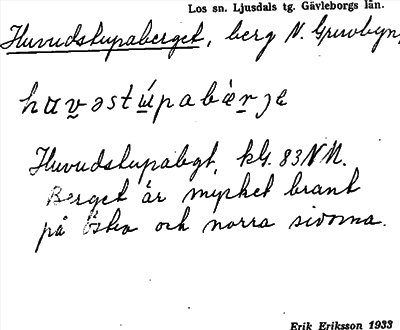 Los sn. Ljusdals tg. Gävleborgs län.
Huvudstupaberget, berg N. Gruvbyn,
Huvudstupabgt, kbl. 83 NV.
Berget är mycket brant
på östra och norra sidorna.
Erik Eriksson 1933